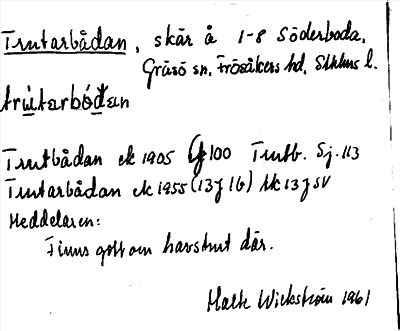 Trutarbådan, skär å 1-8 Söderboda,
Gräsö sn, Frösåkers hd, Sthlms l.
trùtarbódan
Trutbådan ek 1905 100 Trutb. Sj. 113
Trutarbådan ek 1955 (13J 1b) 13J SV
Meddelaren:
Finns gott om havstrut där.
Wickström 1961